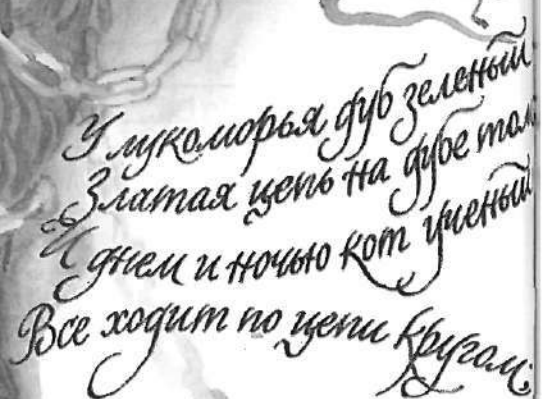 У лукоморья дуб зеленый
Златая цепь на дубе том
И днем и ночью кот ученый
Все ходит по цепи кругом.